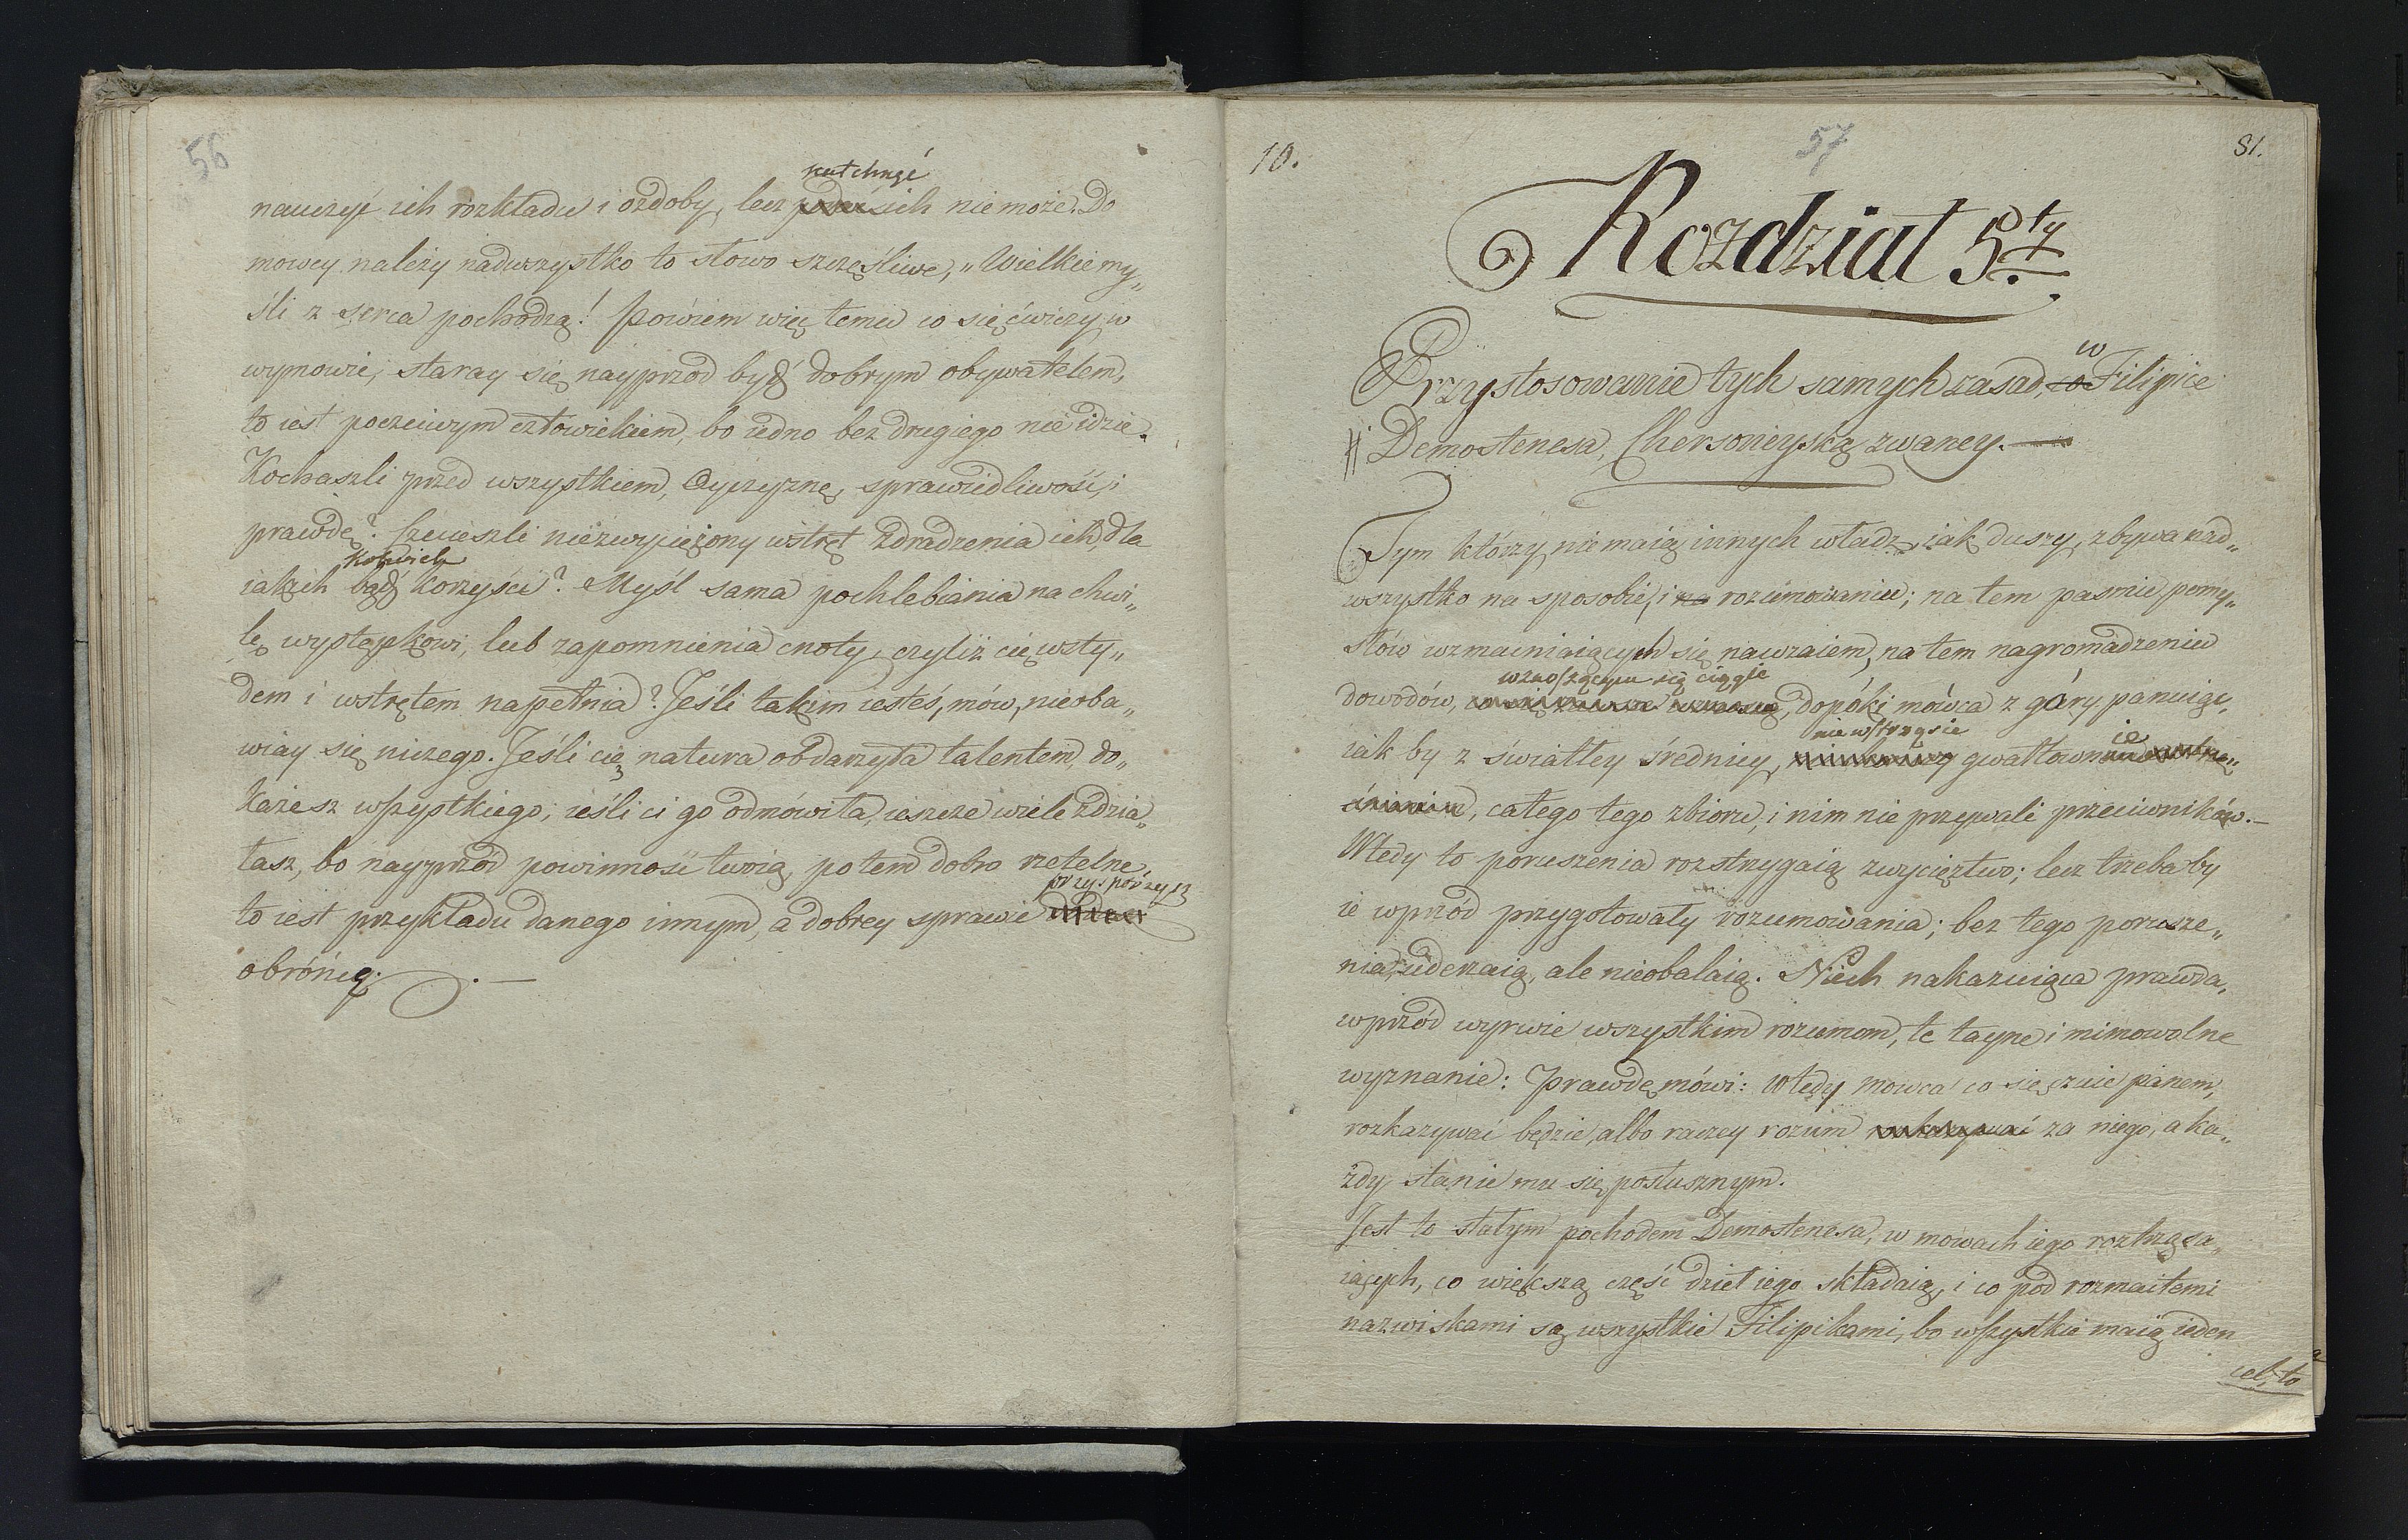 56
natchnąć
nauczyć ich rozkładu i ozdoby, lecz ich nie może. Do
mowcy należy nadwszystko to słowo szczęśliwe, „Wielkie my„
śli z serca pochodzą! Powiem więc temu co się ćwiczy w
wymowie, staray się nayprzód bydź dobrym obywatelem,
to iest poczciwym człowiekiem, bo iedno bez drugiego nie idzie.
Kochaszli przed wszystkiem, Oyczyznę, sprawiedliwość, i
prawdę? Czuieszli niezwyciężony wstręt zdradzenia ich, dla
kolwiek
iakich bądź korzyści? Myśl sama pochlebiania na chwi„
lę występkowi, lub zapomnienia cnoty, czyliż cię wsty„
dem i wstrętem napełnia? Jeśli takim iesteś, mów, nieoba„
wiay się niczego. Jeśli cię natura obdarzyła talentem, do„
każesz wszystkiego; ieśli ci go odmówiła, ieszcze wiele zdzia„
łasz, bo nayprzód powinność twoią, potem dobro rzetelne,
przysporzysz
to iest przykładu danego innym, a dobrey sprawie
obrońcę. —
10.
57
81.
Rozdział 5ty.
w
Przystosowanie tych samych zasad, do Filipice
Demostenesa, Chersonieyską zwaney. —
Tym którzy nie maią innych władz, iak duszy, zbywa nad„
wszystko na sposobie, i na rozumowaniu; na tem pasmie pomy„
słów wzmacniaiących się nawzaiem, na tem nagromadzeniu
wznoszącym się ciągle
dowodów, co się zawsze wznoszą, dopóki mówca z góry panuiąc,
nie wstrząśnie
iak by z światłey średnicy, gwałtownie
, całego tego zbioru, i nim nie przywali przeciwników. —
Wtedy to poruszenia rozstrzygaią zwycięztwo; lecz trzeba by
ie wprzód przygotowały rozumowania; bez tego porusze„
nia, uderzaią, ale nieobalaią. Niech nakazuiąca prawda,
wprzód wyrwie wszystkim rozumom, te tayne i mimowolne
wyznanie: Prawdę mówi: wtedy mowca co się czuie panem,
rozkazywać będzie, albo raczey rozum rozkazywać za niego, a ka„
żdy stanie mu się posłusznym.
Jest to stałym pochodem Demostenesa, w mowach iego roztrząsa„
iących, co większą część dzieł iego składaią, i co pod rozmaitemi
nazwiskami są wszystkie Filipikami, bo wszystkie maią ieden
cel, to